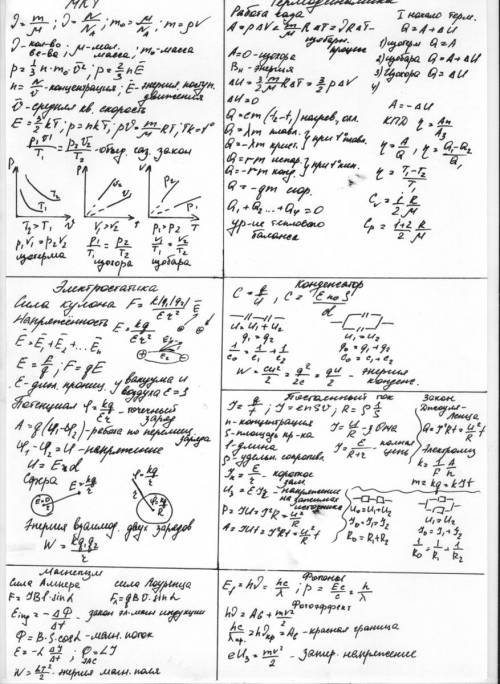 МКТ
ν = m/μ ; ν = N/N_A ; m₀ = μ/N_A ; m = ρV
ν - кол-во в-ва μ - мол. масса; m₀ - масса
p = 1/3 n·m₀ v̄² ; p = 2/3 nE
n = N/V - концентрация; E - энергия поступ. движения
v̄ - средняя кв. скорость
E = 3/2 kT ; p = nkT ; pV = m/μ RT ;
p₁V₁/T₁ = p₂V₂/T₂ - объед. газ. закон
P P V
T₁ T₂ V₂ V₁ P₂ P₁
V T T
T₂ > T₁ V₁ > V₂ p₁ > p₂
p₁V₁ = p₂V₂ p₁/T₁ = p₂/T₂ V₁/T₁ = V₂/T₂
изотерма изохора изобара
Термодинамика
Работа газа
A = pΔV = m/μ RΔT = νRΔT - изобарн. процесс
A = 0 - изохора
Вн - энергия
ΔU = 3/2 m/μ RΔT = 3/2 pΔV
ΔU = 0
Q = cm(t₂ - t₁) нагрев, охл.
Q = λm плавл.
Q = -λm крист. } при t° плавл.
Q = rm испар.
Q = -rm конд. } при t° кип.
Q = -qm сгор.
Q₁ + Q₂ ... + Q₄ = 0
ур-ие теплового баланса
I начало терм.
Q = A + ΔU
1) изотерм Q = A
2) изобара Q = A + ΔU
3) изохора Q = ΔU
4)
A = -ΔU
КПД η = Aп/Aз
η = A/Q , η = Q₁-Q₂/Q₁
η = T₁-T₂/T₁
Cᵥ = i/2 R/M
Cₚ = i+2/2 R/M
Электростатика
Сила кулона F = k|q₁||q₂|/Er²
Напряжённость E = kq/Er²
E̅ = E̅₁ + E̅₂ ... E̅n
E = F/q ; F = qE
E - диэл. прониц. у вакуума и воздуха E = 1
Потенциал φ = kq/Er - точечный заряд
A = q(φ₁ - φ₂) - работа по перемещ. заряда
φ₁ - φ₂ = U - напряжение
U = E·d
Сфера E = kq/r φ = kq/r
E = 0 φ = kq/R
Энергия взаимод. двух зарядов
W = kq₁q₂/r
Конденсатор
C = q/U , C = EE₀S/d
U = U₁ + U₂ U₁ = U₂
q₁ = q₂ q₀ = q₁ + q₂
1/C₀ = 1/C₁ + 1/C₂ C₀ = C₁ + C₂
W = CU²/2 = q²/2C = qU/2 - энергия конденс.
Постоянный ток
I = q/t ; I = enSV ; R = ρ l/S
n - концентрация
S - площадь пр-ка
l - длина
ρ - удельн. сопротивл.
I = U/R - з. Ома
I = E/R+r - полная цепь
Iк = E/r короткое зам.
U₃ = E·I₂ - напряжение на зажимах источника
P = IU = I²R = U²/R
A = IUt = I²Rt = U²/R t
Закон Джоуля-Ленца
Q = I²Rt = U²/R t
Электролиз
k = 1/F A/n
m = kq = kIt
U₀ = U₁ + U₂
I₀ = I₁ = I₂
R₀ = R₁ + R₂
U₁ = U₂
I₀ = I₁ + I₂
1/R₀ = 1/R₁ + 1/R₂
Магнетизм
Сила Ампера сила Лоуренца
F = IBl·sinα Fл = qBυ·sinα
Eинд = -ΔФ/Δt - закон эл. магн индукции
Ф = B·S·cosα - магн. поток
E = -L ΔI/Δt ; Ф = LI
W = LI²/2 - энергия магн. поля
Фотоны
E₁ = hν = hc/λ ; p = E/c = h/λ
Фотоэффект
hν = Aв + mv²/2
hc/λкр. = hνкр = Aв - красная граница
eU₃ = mv²/2 - запир. напряжение